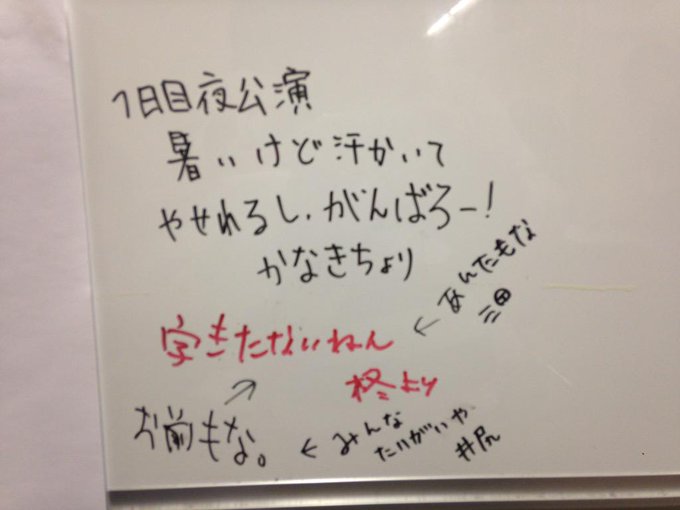 1日目夜公演
暑いけど汗かいて
やせれるし、がんばろー!
かなきちより
字きたないねん
柊より
← あんたもな
三田
お前もな。
← みんな
たいがいや
井尻